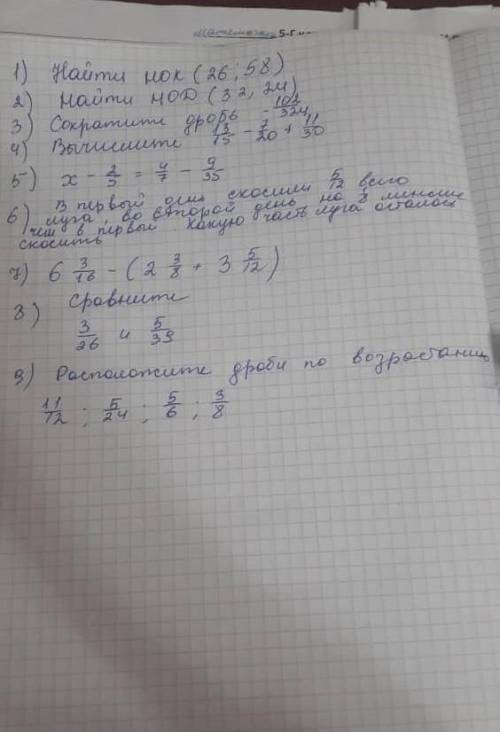 Математика 5-Г
1) Найти НОК (26; 58)
2) Найти НОД (32, 24)
3) Сократите дробь 102/324
4) Вычислите 13/15 - 7/20 + 11/30
5) x - 2/5 = 4/7 - 9/35
6) В первый день скосили 5/12 всего
луга, во второй день на меньше
чем в первый какую часть луга осталось
скосить
7) 6 3/16 - (2 3/8 + 3 5/12)
8) Сравните
3/26 и 5/39
9) Расположите дроби по возрастанию
11/12 ; 5/24 ; 5/6 ; 3/8